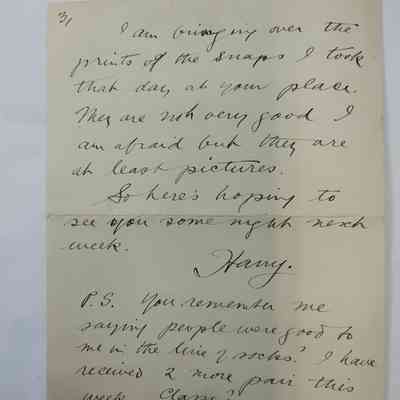 3/
I am bringing over the
prints of the snaps I took
that day at your place.
They are not very good I
am afraid but they are
at least pictures.
So here's hoping to
see you some night next
week.
Harry.
P.S. You remember me
saying people were good to
me in the line of socks? I have
received 2 more pair this
week. Classy?